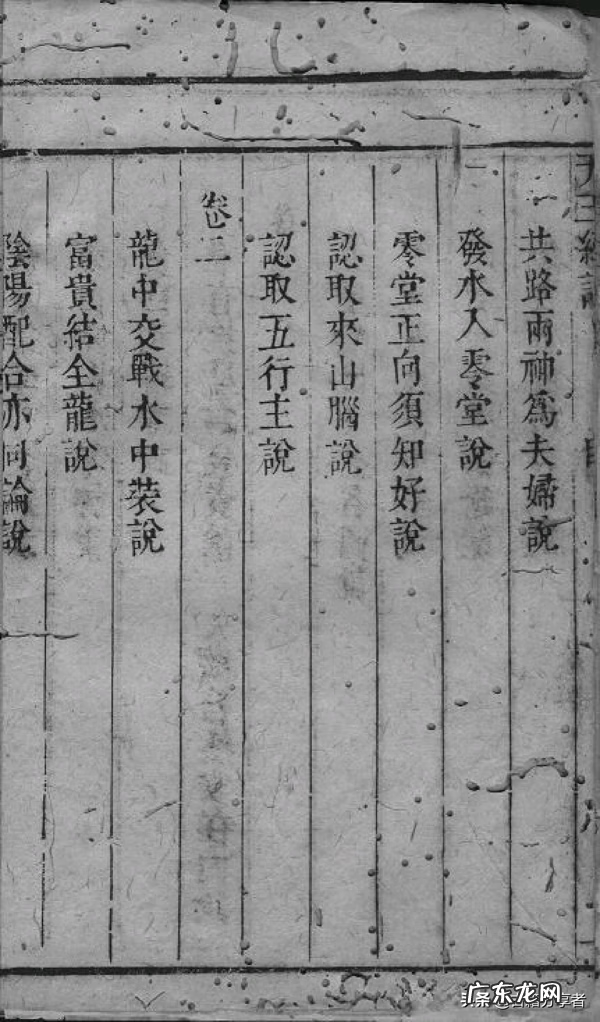 共路兩神爲夫婦說
發水入零堂說
零堂正向須知好說
認取來山腦說
認取五行主說
卷二
龍中交戰水中裝說
富貴結全龍說
陰陽配合亦同論說
广东龙网